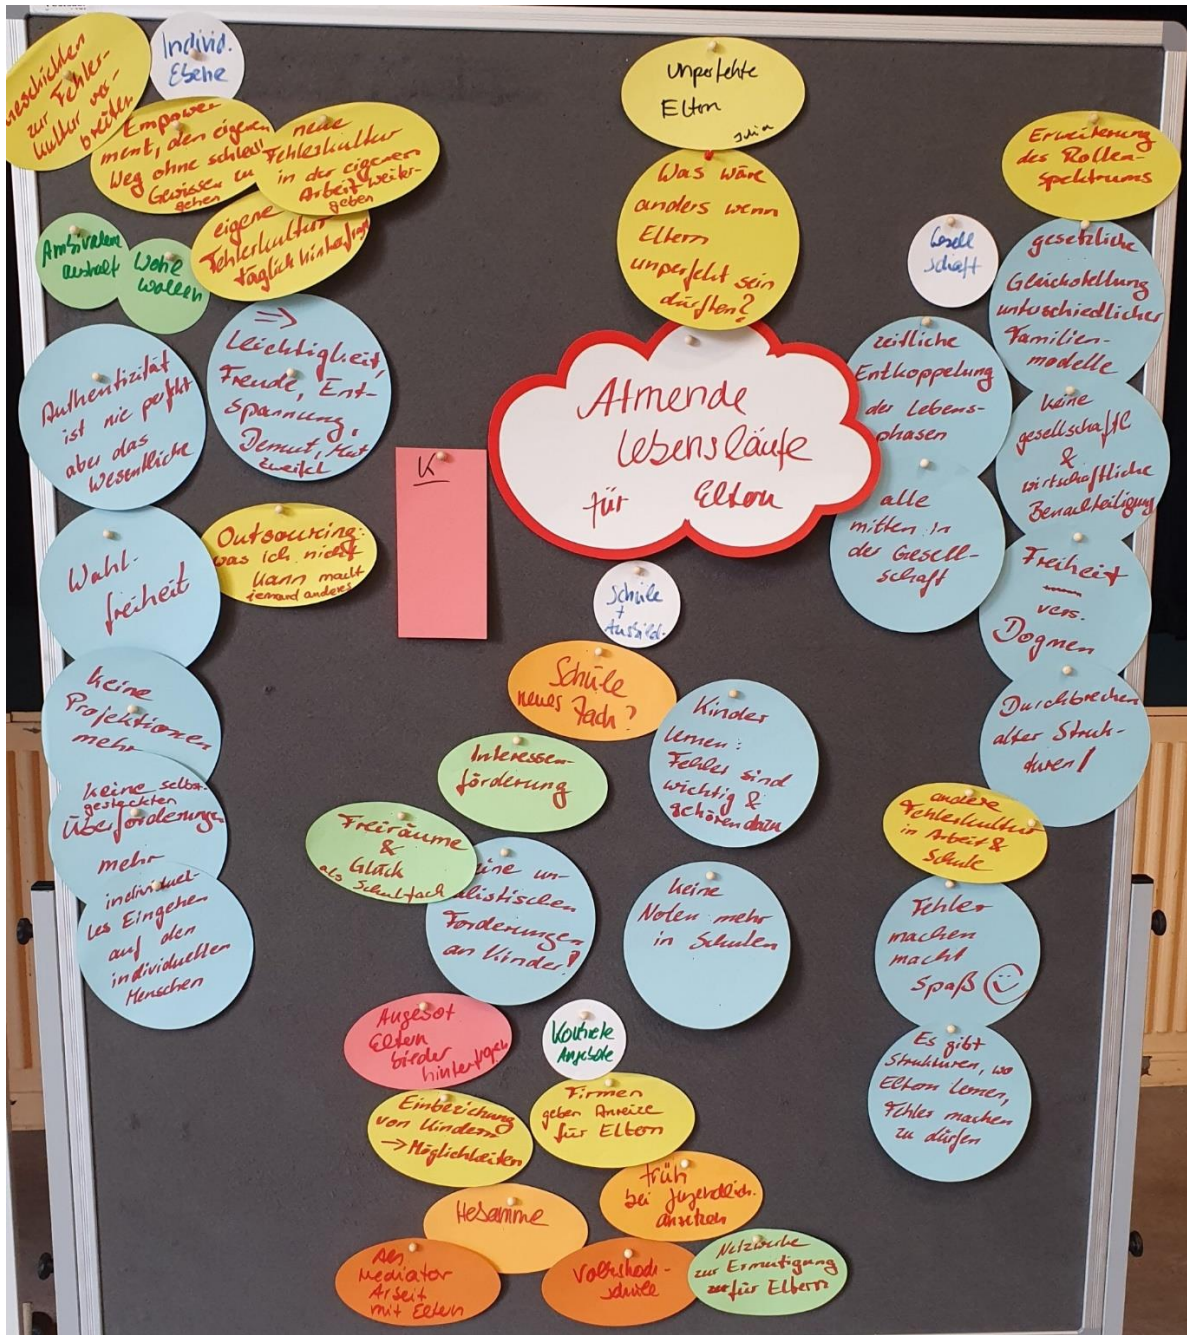 Geschichten
zur Fehler-
kultur ver-
breiten
Individ.
Ebene
Empower
ment, den eigenen
Weg ohne schlech
Gewissen zu
gehen
neue
Fehlerkultur
in der eigenen
Arbeit weiter-
geben
eigene
Fehlerkultur
täglich hinterfragen
Ambivalenz
aushalt
Wohl
wollen
Authentizität
ist nie perfekt
aber das
Wesentliche
=>
Leichtigkeit,
Freude, Ent-
spannung,
Demut, Mut
zweifel
Wahl-
freiheit
Outsourcing:
was ich nicht
kann macht
jemand anderes
keine
Projektionen
mehr
keine selbst-
gesteckten
Überforderungen
mehr
individuel-
les Eingehen
auf den
individuellen
Menschen
unperfekte
Eltern
Julia
Was wäre
anders wenn
Eltern
unperfekt sein
dürften?
Atmende
Lebensläufe
für Eltern
K
Schule
+
Ausbild.
Schule
neues Fach?
Interessen-
förderung
Kinder
lernen:
Fehler sind
wichtig &
gehören dazu
Freiräume
&
Glück
als Schulfach
ine un-
listischen
Forderungen
an Kinder!
keine
Noten mehr
in Schulen
Angebot
Eltern
hinterfragen
Konkrete
Angebote
Einbeziehung
von Kindern
→ Möglichkeiten
Firmen
geben Anreize
für Eltern
früh
bei Jugendlich.
ansetzen
Hebamme
Als
Mediator
Arbeit
mit Eltern
Volkshoch-
schule
Netzwerke
zur Ermutigung
für Eltern
Erweiterung
des Rollen-
spektrums
Gesell
schaft
gesetzliche
Gleichstellung
unterschiedlicher
Familien-
modelle
zeitliche
Entkoppelung
der Lebens-
phasen
keine
gesellschaftl
&
wirtschaftliche
Benachteiligung
alle
mitten in
der Gesell-
schaft
Freiheit
vers.
Dogmen
Durchbrechen
alter Struk-
turen!
andere
Fehlerkultur
in Arbeit &
Schule
Fehler
machen
macht
Spaß
Es gibt
Strukturen, wo
Eltern lernen,
Fehler machen
zu dürfen